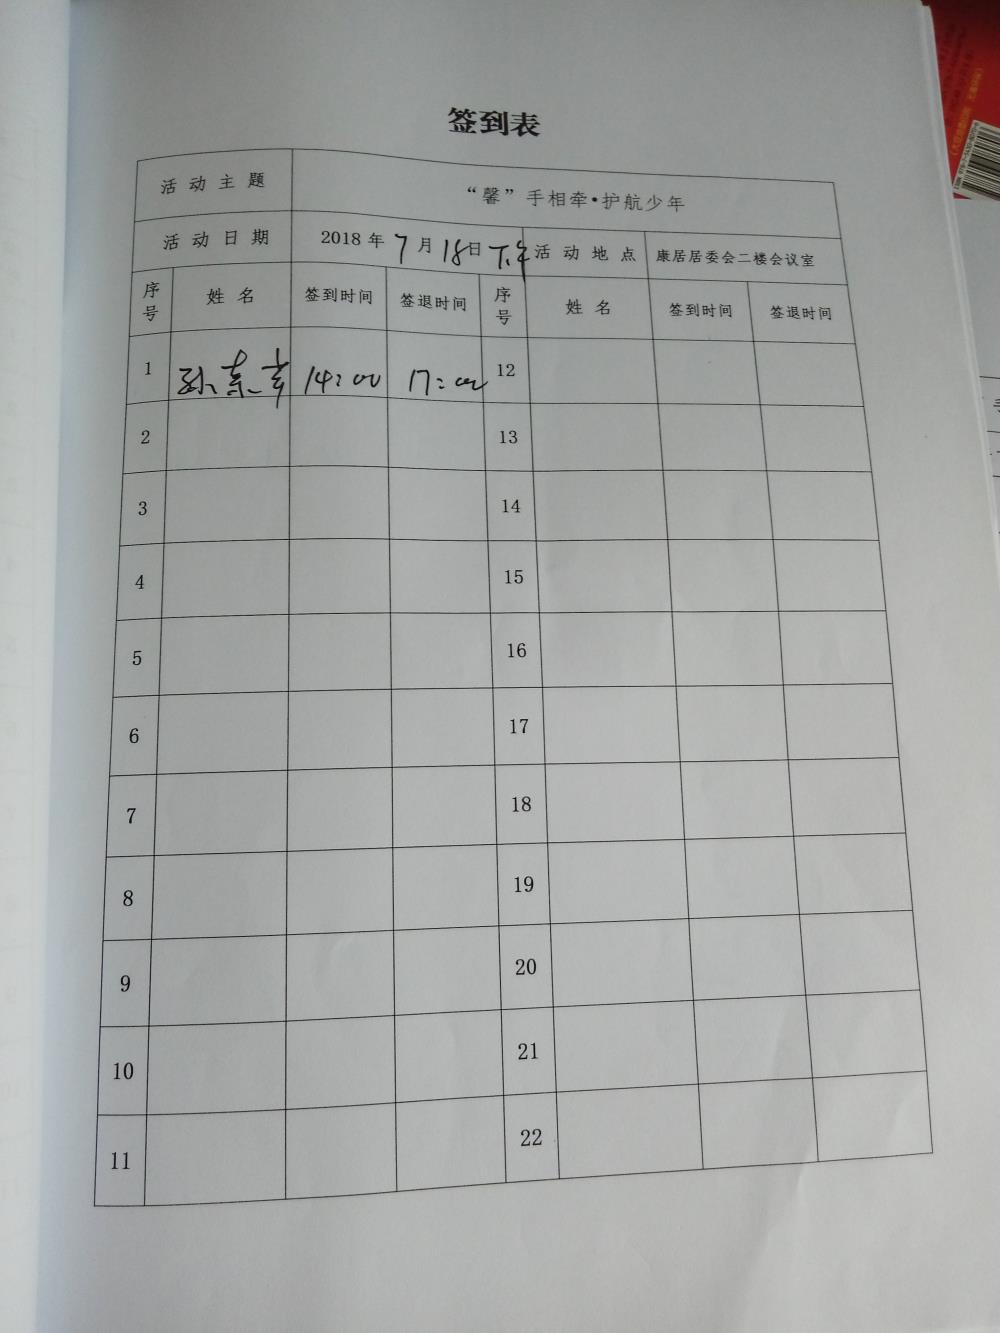 签到表
活动主题 “馨”手相牵•护航少年
活动日期 2018年7月18日下午 活动地点 康居居委会二楼会议室
序号 姓名 签到时间 签退时间 序号 姓名 签到时间 签退时间
1 孙东 14:00 17:00 12
2 13
3 14
4 15
5 16
6 17
7 18
8 19
9 20
10 21
11 22